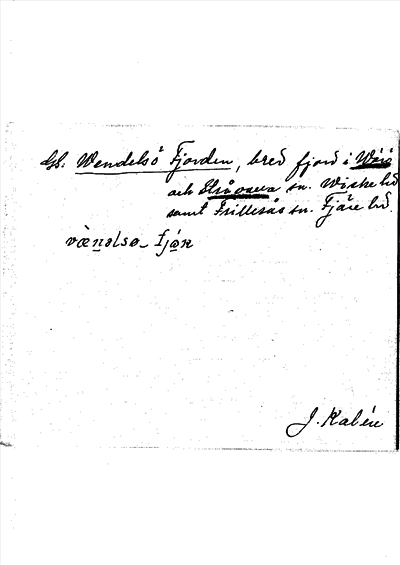 Gl. Wendelsö Fjorden, bred fjord i Wärö
och Stråvalla sn. Wiske hd
samt Frillesås sn. Fjäre hd.
væ̀nəlsə- fjǫ́ʀ
J. Kalén